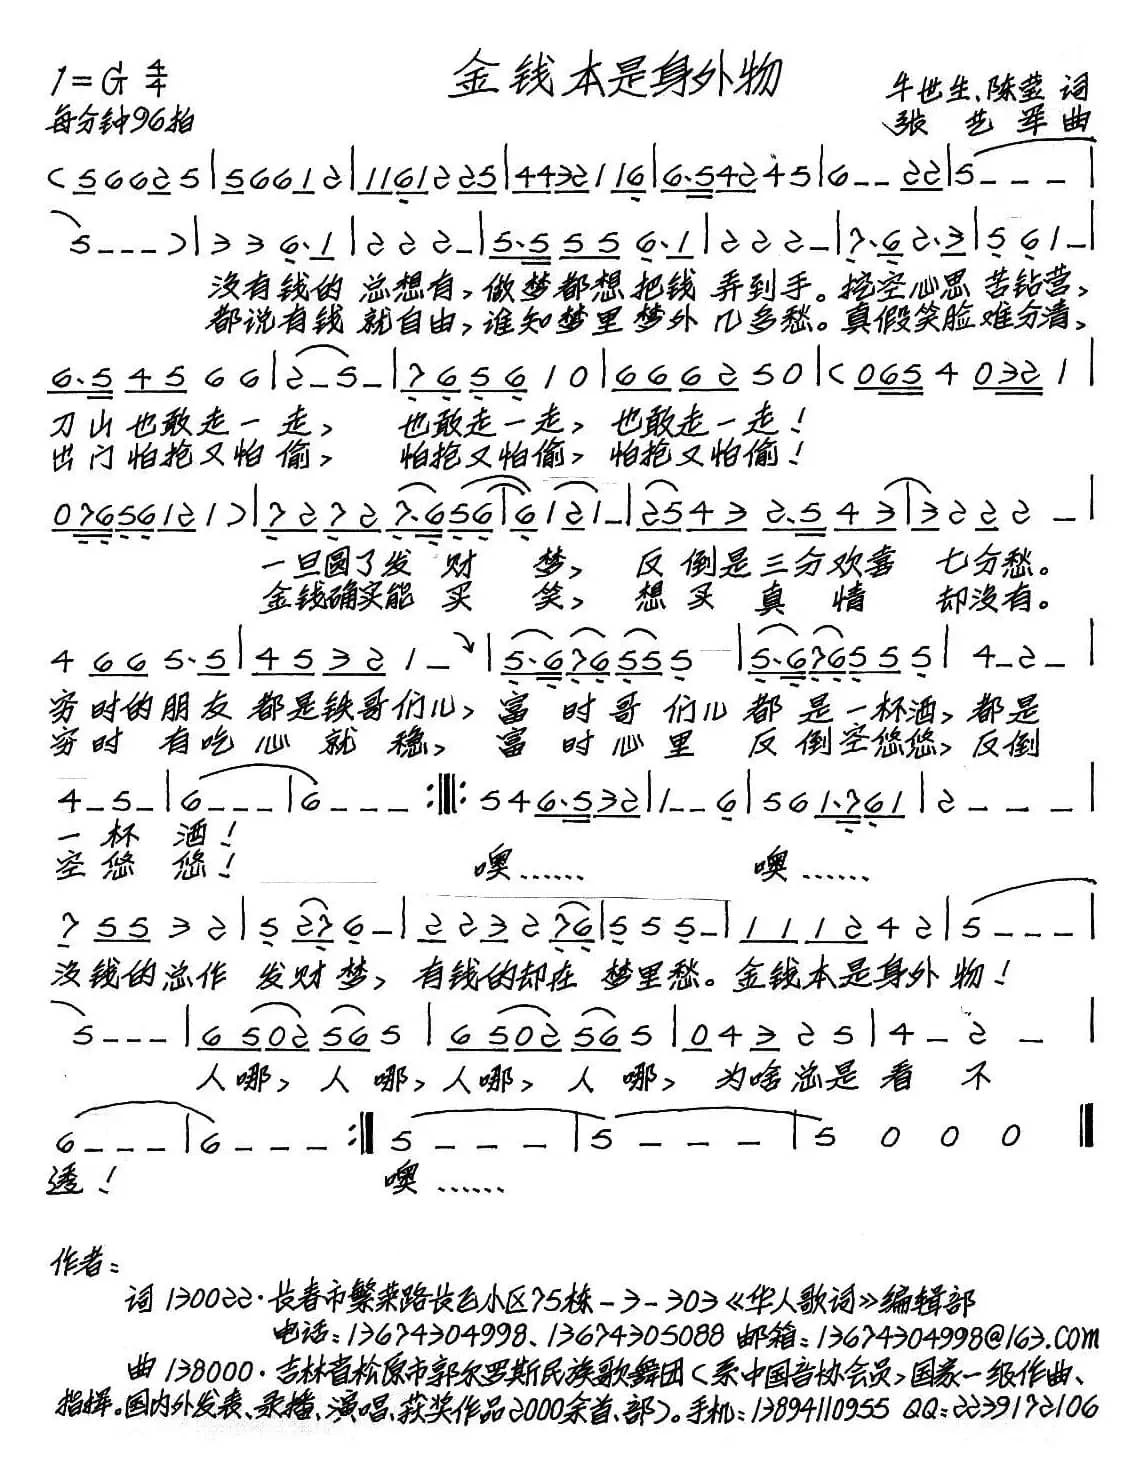 金钱本是身外物
1=G 4/4
每分钟96拍
牛世生、陈莹 词
张艺军 曲
(5 6 6 2 5|5 6 6 1 2|1 1 6 1 2 2 5|4 4 3 2 1 1 6|6·5 4 2 4 5|6 _ _ 2 2|5 _ _ _|
5 _ _ _)|3 3 6·1|2 2 2 _|5·5 5 5 6·1|2 2 2 _|7·6 2·3|5 6 1 _|
没有钱的总想有，做梦都想把钱弄到手。挖空心思苦钻营，
都说有钱就自由，谁知梦里梦外几多愁。真假笑脸难分清，
6·5 4 5 6 6|2 _ 5 _|7 6 5 6 1 0|6 6 6 2 5 0|(0 6 5 4 0 3 2 1|
刀山也敢走一走，也敢走一走，也敢走一走！
出门怕抢又怕偷，怕抢又怕偷，怕抢又怕偷！
0 7 6 5 6 1 2 1)|7 2 7 2 7·6 5 6|6 1 2 1 _|2 5 4 3 2·5 4 3|3 2 2 2 _|
一旦圆了发财梦，反倒是三分欢喜七分愁。
金钱确实能买笑，想买真情却没有。
4 6 6 5·5|4 5 3 2 1 _|5·6 7 6 5 5 5|5·6 7 6 5 5 5|4 _ 2 _|
穷时的朋友都是铁哥们儿，富时哥们儿都是一杯酒，都是
穷时有吃心就稳，富时心里反倒空悠悠，反倒
4 _ 5 _|6 _ _ _|6 _ _ _:‖:5 4 6·5 3 2|1 _ _ 6|5 6 1·7 6 1|2 _ _ _|
一杯酒！
空悠悠！ 噢…… 噢……
7 5 5 3 2|5 2 7 6 _|2 2 3 2 7 6|5 5 5 _|1 1 1 2 4 2|5 _ _ _|
没钱的总作发财梦，有钱的却在梦里愁。金钱本是身外物！
5 _ _ _|6 5 0 2 5 6 5|6 5 0 2 5 6 5|0 4 3 2 5|4 _ 2 _|
人哪，人哪，人哪，人哪，为啥总是看不
6 _ _ _|6 _ _ _:‖5 _ _ _|5 _ _ _|5 0 0 0‖
透！ 噢……
作者：
词 130022·长春市繁荣路长飞小区75栋-3-303《华人歌词》编辑部
电话：13674304998、13674305088 邮箱：13674304998@163.com
曲 138000·吉林省松原市郭尔罗斯民族歌舞团（系中国音协会员，国家一级作曲、
指挥。国内外发表、录播、演唱、获奖作品2000余首、部）。手机：13894110955 QQ：2239172106